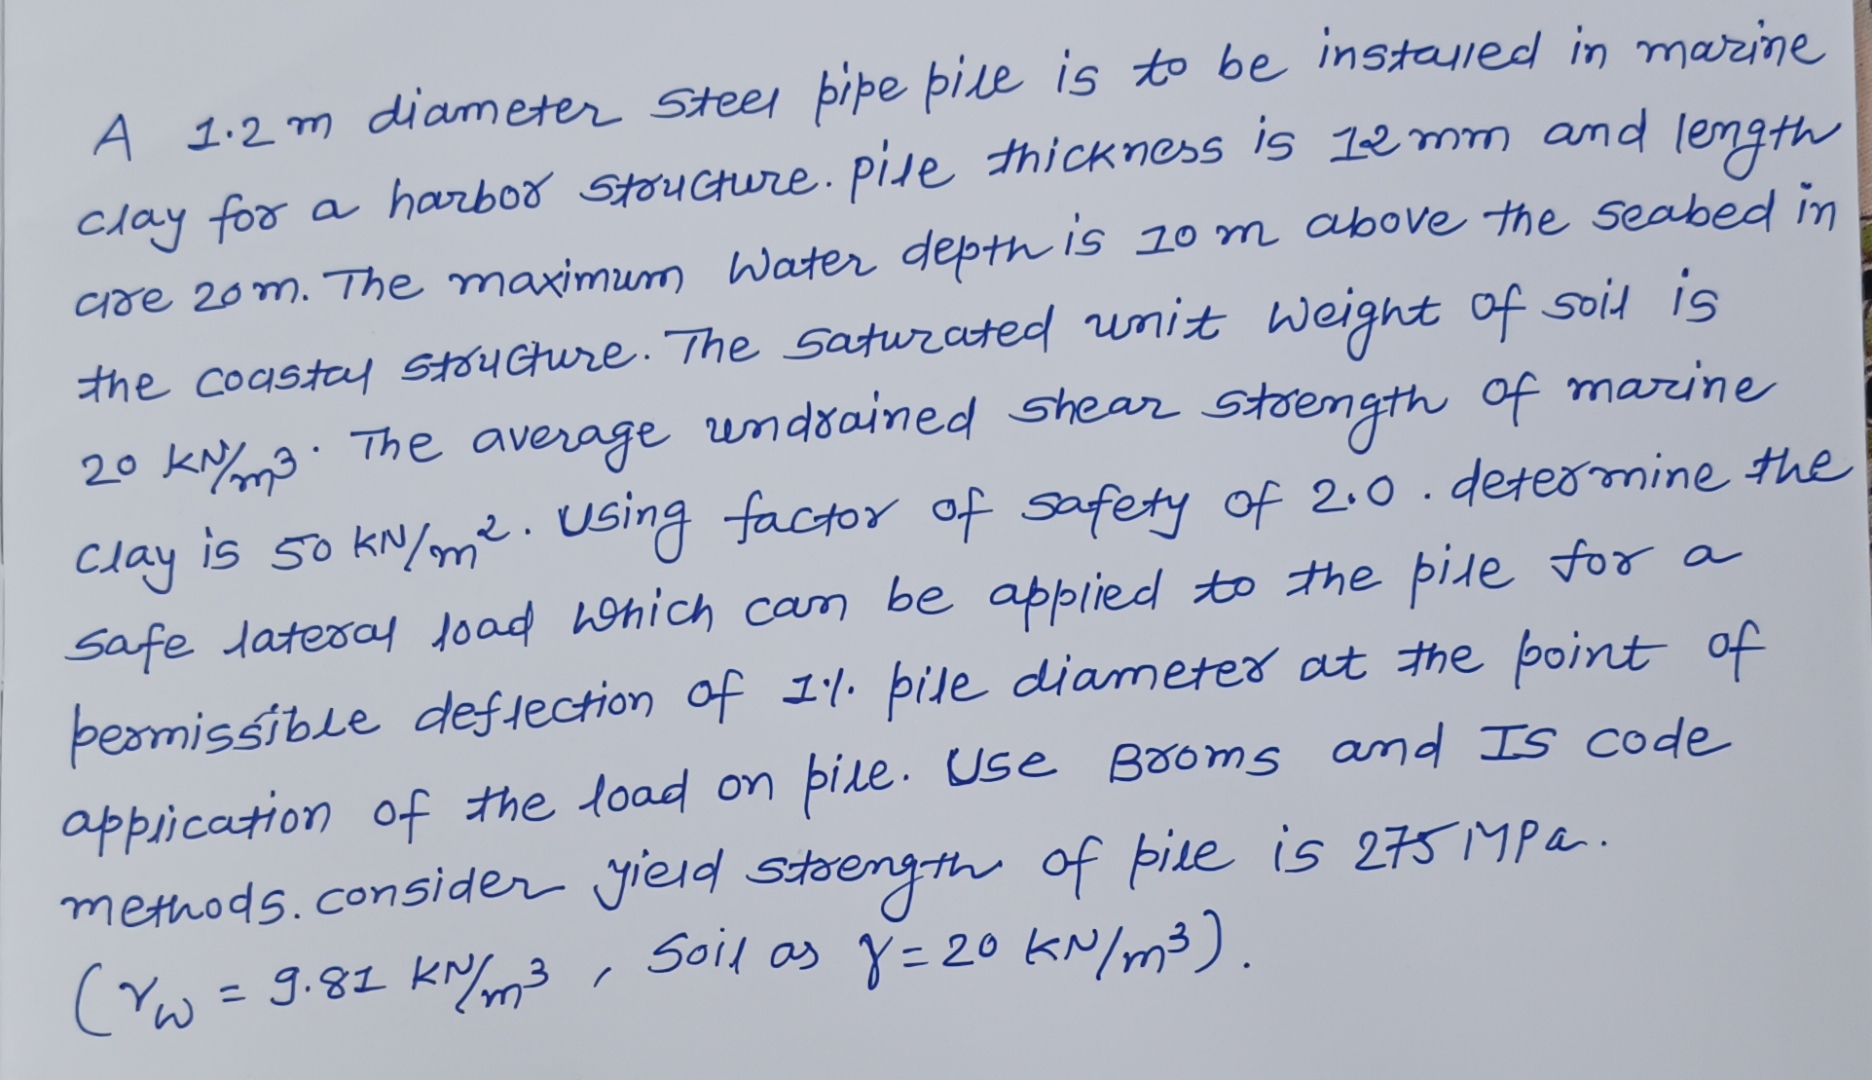 A 1.2 m diameter steel pipe pile is to be installed in marine
clay for a harbor structure. pile thickness is 12 mm and length
are 20m. The maximum water depth is 10 m above the seabed in
the coastal structure. The saturated unit weight of soil is
20 KN/m3. The average undrained shear strength of marine
clay is 50 KN/m2. Using factor of safety of 2.0. determine the
safe lateral load which can be applied to the pile for a
permissible deflection of 1% pile diameter at the point of
application of the load on pile. Use Broms and IS code
methods. consider yield strength of pile is 275 MPa.
(γw = 9.81 KN/m3, Soil as γ = 20 KN/m3).